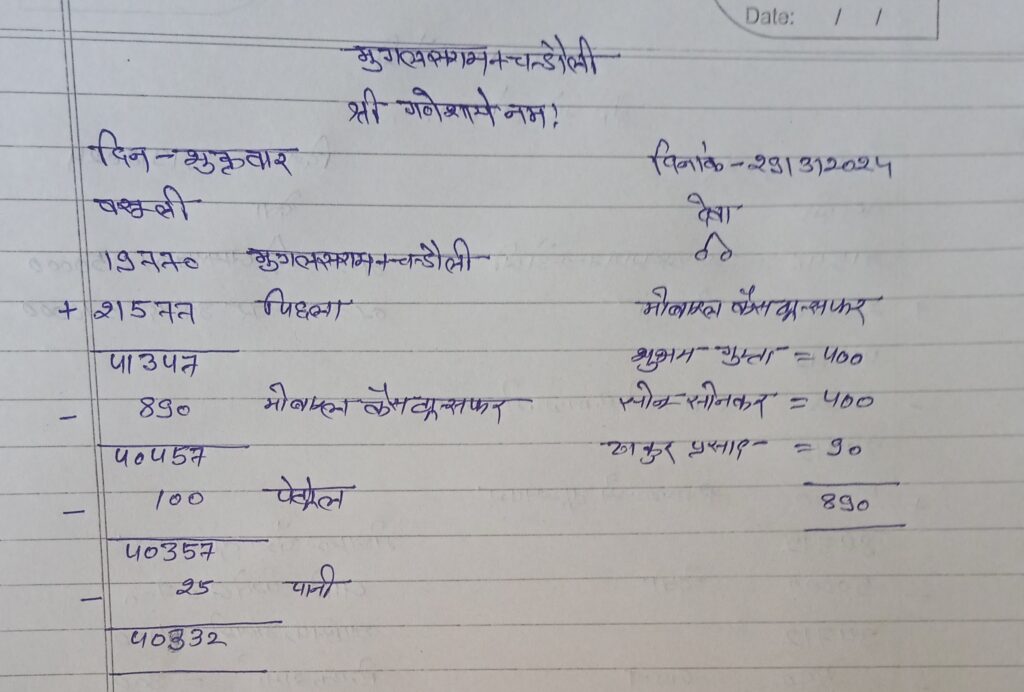 Date: / /
मुगलसराय + चन्डौली
श्री गनेशाये नम!
दिन - शुक्रवार दिनांक - 29/3/2024
वसूली देबा
19770 मुगलसराय + चन्डौली
+ 21577 पिछला मोबाइल कैस ट्रान्सफर
41347 शुभम गुप्ता = 400
- 890 मोबाइल कैस ट्रान्सफर सोनू सोनकर = 400
40457 ठाकुर प्रसाद = 90
- 100 पेट्रोल 890
40357
- 25 पानी
40332